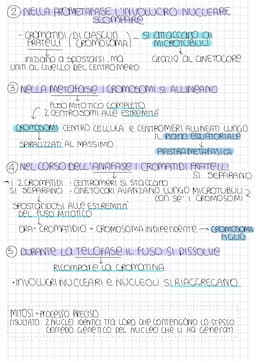 ② NELLA PROMETAFASE L'INVOLUCRO NUCLEARE
SCOMPARE
- CROMATIDI (DI CIASCUN → SI ATTACCANO AI
FRATELLI CROMOSOMA) MICROTUBULI
INIZIANO A SPOSTARSI, MA GRAZIE AL CINETOCORE
UNITI AL LIVELLO DEL CENTROMERO
③ NELLA METAFASE I CROMOSOMI SI ALLINEANO
FUSO MITOTICO COMPLETO
2 CENTROSOMI ALLE ESTREMITÀ
CROMOSOMI CENTRO CELLULA E CENTROMERI ALLINEATI LUNGO
IL PIANO EQUATORIALE
SPIRALIZZATI AL MASSIMO
PIASTRA METAFASICA
④ NEL CORSO DELL'ANAFASE I CROMATIDI FRATELLI
SI SEPARANO
→ I 2 CROMATIDI - CENTROMERI SI STACCANO
SI SEPARANO - CINETOCORI AVANZANO LUNGO MICROTUBULI
(CON SE' I CROMOSOMI)
SPOSTANDOSI ALLE ESTREMITÀ
DEL FUSO MITOTICO
ORA- CROMATIDIO = CROMOSOMA INDIPENDENTE → CROMOSOMA
FIGLIO
⑤ DURANTE LA TELOFASE IL FUSO SI DISSOLVE
RICOMPARE LA CROMATINA
• INVOLUCRI NUCLEARI E NUCLEOLI SI RIAGGREGANO
MITOSI = PROCESSO PRECISO
RISULTATO: 2 NUCLEI IDENTICI TRA LORO CHE CONTENGONO LO STESSO
CORREDO GENETICO DEL NUCLEO CHE LI HA GENERATI